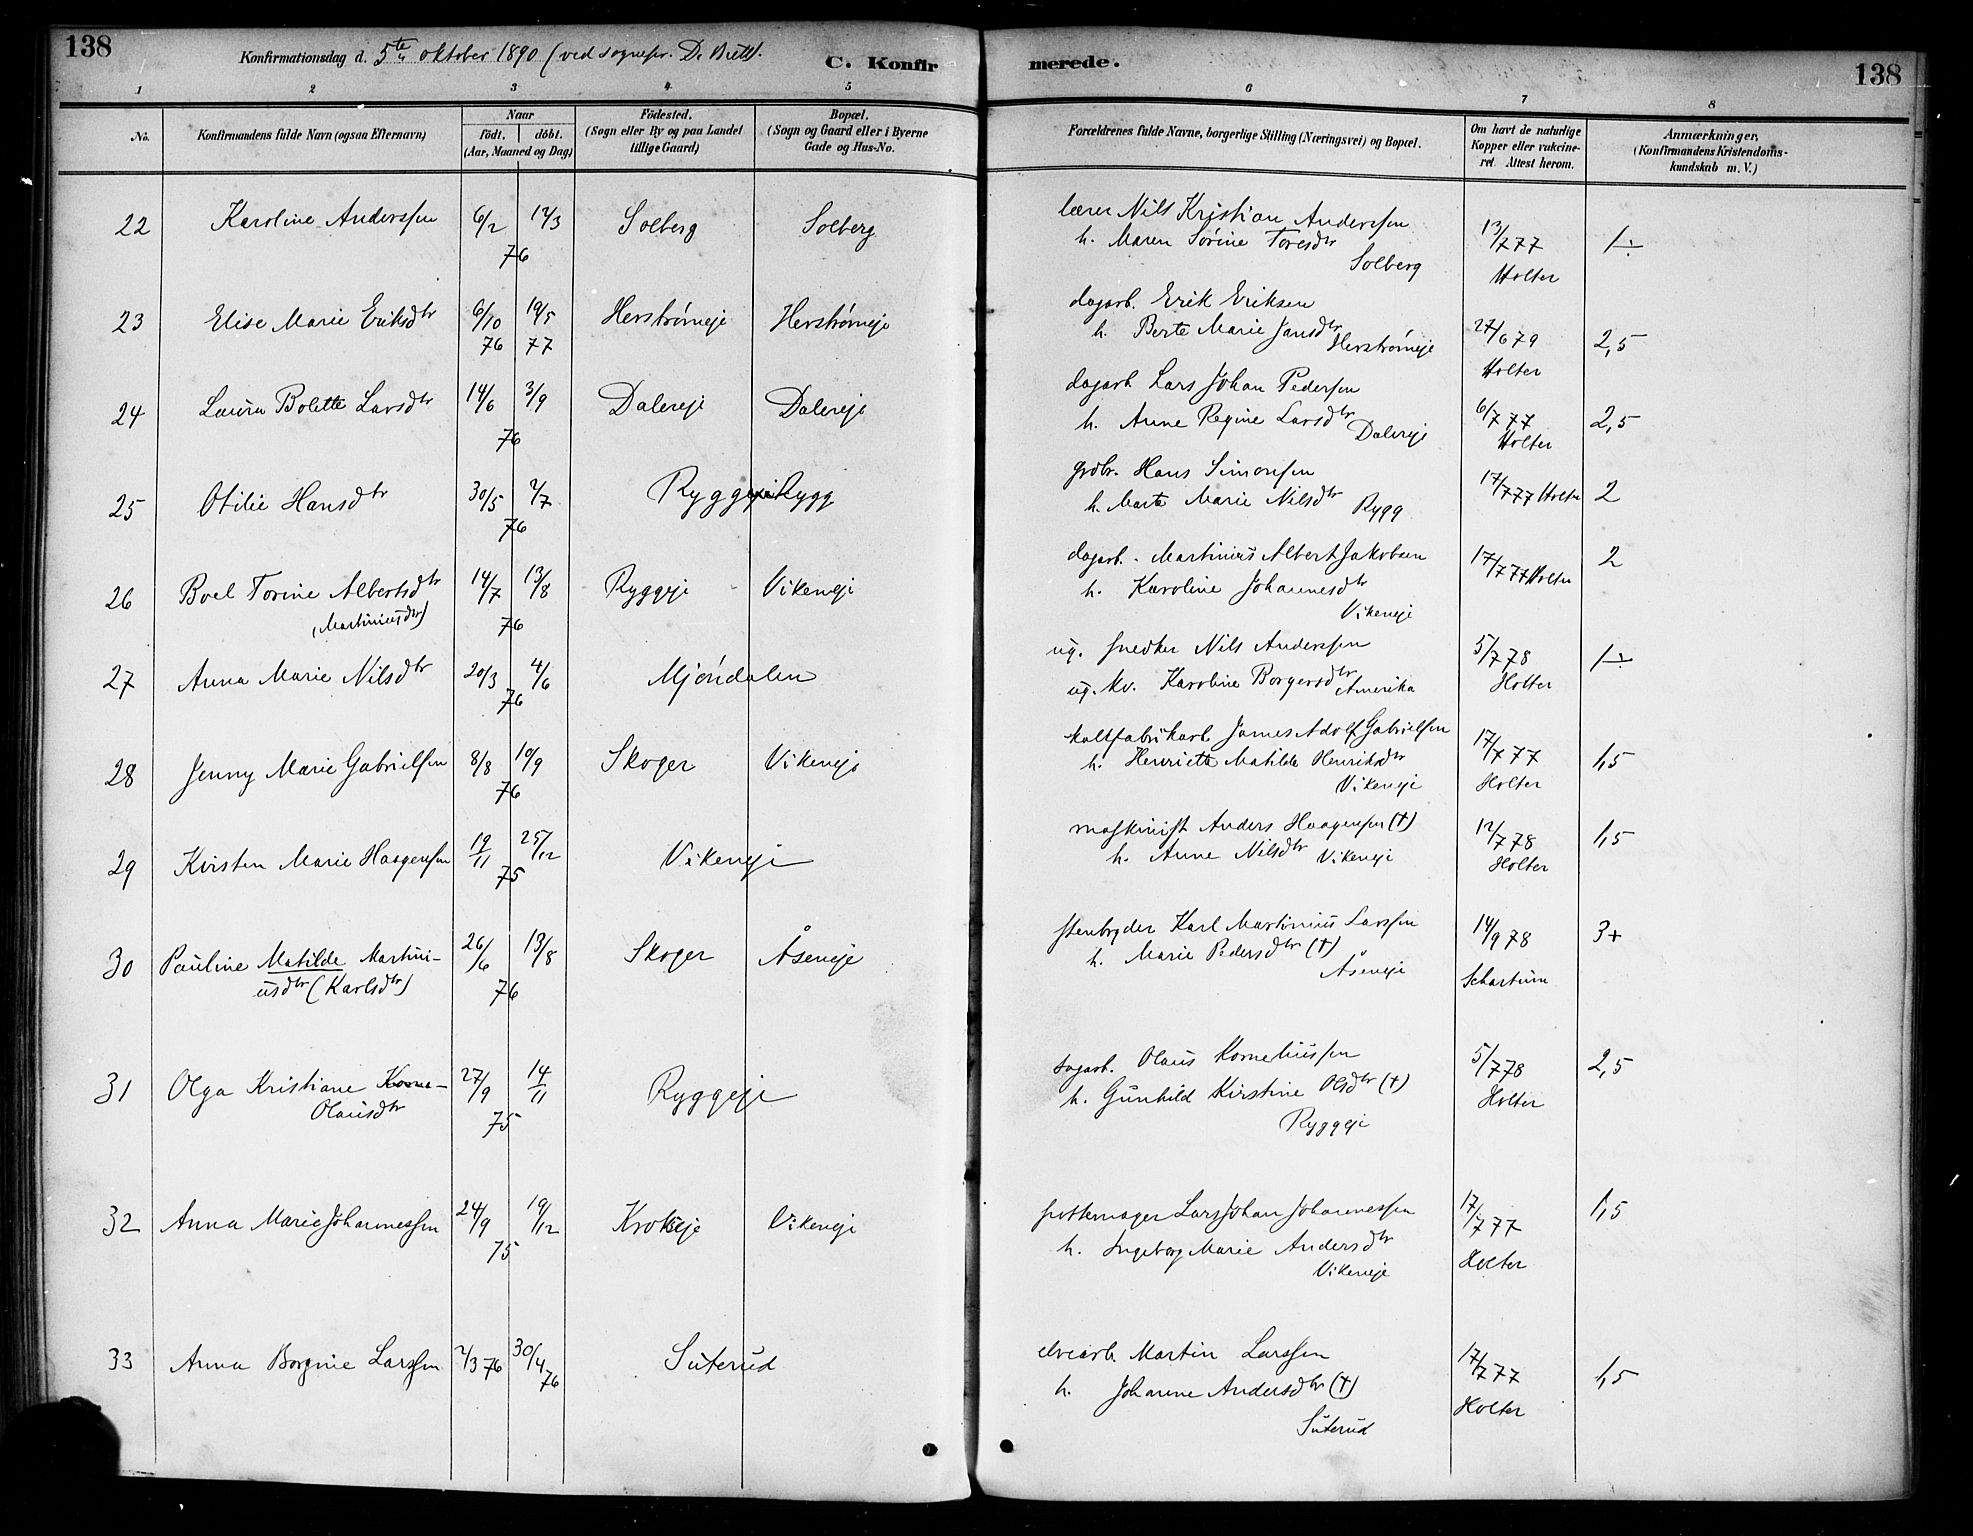 138
Konfirmationsdag d. 5te oktober 1890 (ved sognepr. D. Brett).
C. Konfir
merede.
138
1 2 3 4 5 6 7 8
No.
Konfirmandens fulde Navn (ogsaa Efternavn)
Naar
födt. döbt.
(Aar, Maaned og Dag)
Födested.
(Sogn eller By og paa Landet
tillige Gaard)
Bopæl.
(Sogn og Gaard eller i Byerne
Gade og Hus-No.
Forældrenes fulde Navne, borgerlige Stilling (Næringsvei) og Bopæl.
Om havt de naturlige
Kopper eller vakcine-
ret. Attest herom.
Anmærkninger.
(Konfirmandens Kristendoms-
kundskab m. V.)
22 Karoline Anderssen 6/2 12/3 Solberg Solberg
76
lærer Nils Kristian Anderssen
h. Maren Sørine Toresdtr
Solberg
13/7 77
Holter
1÷
23 Elise Marie Eriksdtr 6/10 19/5 Herstrømeje Herstrømeje
76 77
dagarb. Erik Eriksen
h. Berte Marie Jansdtr
Herstrømeje
27/6 79
Holter
2,5
24 Laura Bolette Larsdtr 14/6 3/9 Dalereje Dalereje
76
dagarb. Lars Johan Pedersen
h. Anne Regine Larsdtr
Dalereje
6/7 77
Holter
2,5
25 Otilie Hansdtr 30/5 2/7 Ryggeje Rygg
76
grdbr. Hans Simonsen
h. Marte Marie Nilsdtr
Rygg
17/7 77 Holter
2
26 Boel Torine Albertsdtr 14/7 13/8 Ryggeje Vikeneje
(Martiniusdtr) 76
dagarb. Martinius Albert Jakobsen
h. Karoline Johannesdtr
Vikeneje
17/7 77 Holter
2
27 Anna Marie Nilsdtr 20/3 4/6 Mjöndalen
76
ug. snedker Nils Anderssen
ug. kv. Karoline Borgersdtr
Amerika
5/7 78
Holter
1÷
28 Jenny Marie Gabrielsen 8/8 10/9 Skoger Vikeneje
76
kalkfabrikarb. James Adolf Gabrielsen
h. Henriette Matilde Henriksdtr
Vikeneje
17/7 77
Holter
1,5
29 Kristen Marie Haagensen 19/11 25/12 Vikeneje
75
maskinist Anders Haagensen (†)
h. Anne Nilsdtr Vikeneje
12/7 78
Holter
1,5
30 Pauline Matilde Martini-
usdtr (Karlsdtr)
26/6 13/8 Skoger Åseneje
76
stenbryder Karl Martinius Larssen
h. Marie Pedersdtr (†)
Åseneje
14/9 78
Schartum
3+
31 Olga Kristiane Korne-
Olausdtr
27/9 14/11 Ryggeje
75
sagarb. Olaus Korneliussen
h. Gunhild Kirstine Olsdtr (†)
Ryggeje
5/7 78
Holter
2,5
32 Anna Marie Johannessen 24/9 19/12 Krokeje Vikeneje
75
pottemager Lars Johan Johannessen
h. Ingeborg Marie Andersdtr
Vikeneje
17/7 77
Holter
1,5
33 Anna Borgine Larssen 2/3 76 30/4 76 Suterud
elvearb. Martin Larssen
h. Johanne Andersdtr (†)
Suterud
17/7 77
Holter
1,5